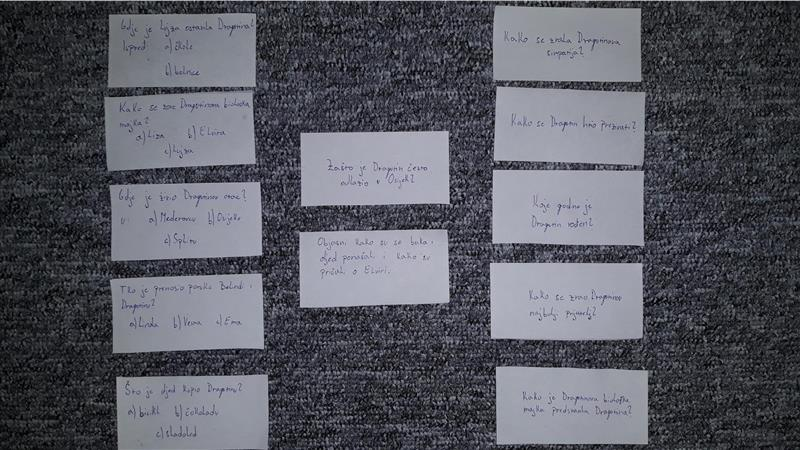 Gdje je Lijza ostavila Dragutina?
Ispred a) škole
b) bolnice
Kako se zove Dragutinova biološka
majka?
a) Liza b) Elvira
c) Lijza
Gdje je živio Dragutinov otac?
U: a) b) Osijeku
c) Splitu
Tko je prenosio poruke Belindi i
Dragutinu?
a) Linda b) Vesna c) Ema
Što je djed kupio Dragutinu?
a) bicikl b) čokoladu
c) sladoled
Zašto je Dragutin često
odlazio u Osijek?
Objasni kako su se baka i
djed ponašali i kako su
pričali o Elviri.
Kako se zvala Dragutinova
simpatija?
Kako se Dragutin htio prezivati?
Koje godine je
Dragutin rođen?
Kako se zvao Dragutinov
najbolji prijatelj?
Kako je Dragutinova biološka
majka predstavila Dragutina?